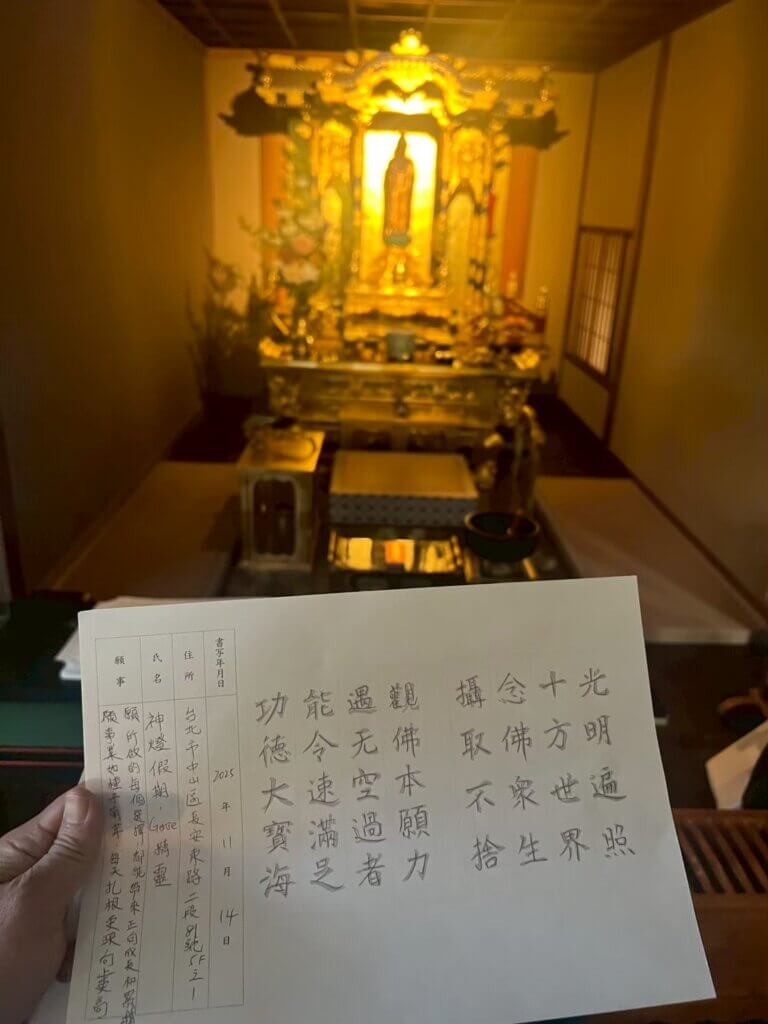 光明遍照
十方世界
念佛衆生
攝取不捨
觀佛本願力
遇无空過者
能令速滿足
功德大寶海
書写年月日 2025年11月14日
住所 台北市中山區長安東路二段81號5F之1
氏名 神燈假期·精靈
願事 願所做的每個選擇,都能帶來正向成長和累積
願事業如種子萌芽,每天扎根更深向上更高